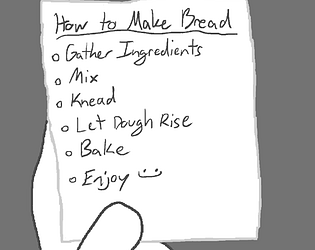 How to Make Bread
o Gather Ingredients
o Mix
o Knead
o Let Dough Rise
o Bake
o Enjoy :)